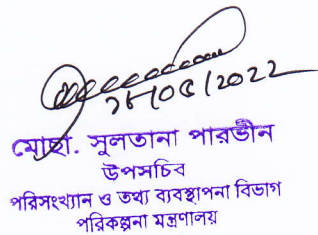 ২৮/০৫/2022
মোছা. সুলতানা পারভীন
উপসচিব
পরিসংখ্যান ও তথ্য ব্যবস্থাপনা বিভাগ
পরিকল্পনা মন্ত্রণালয়